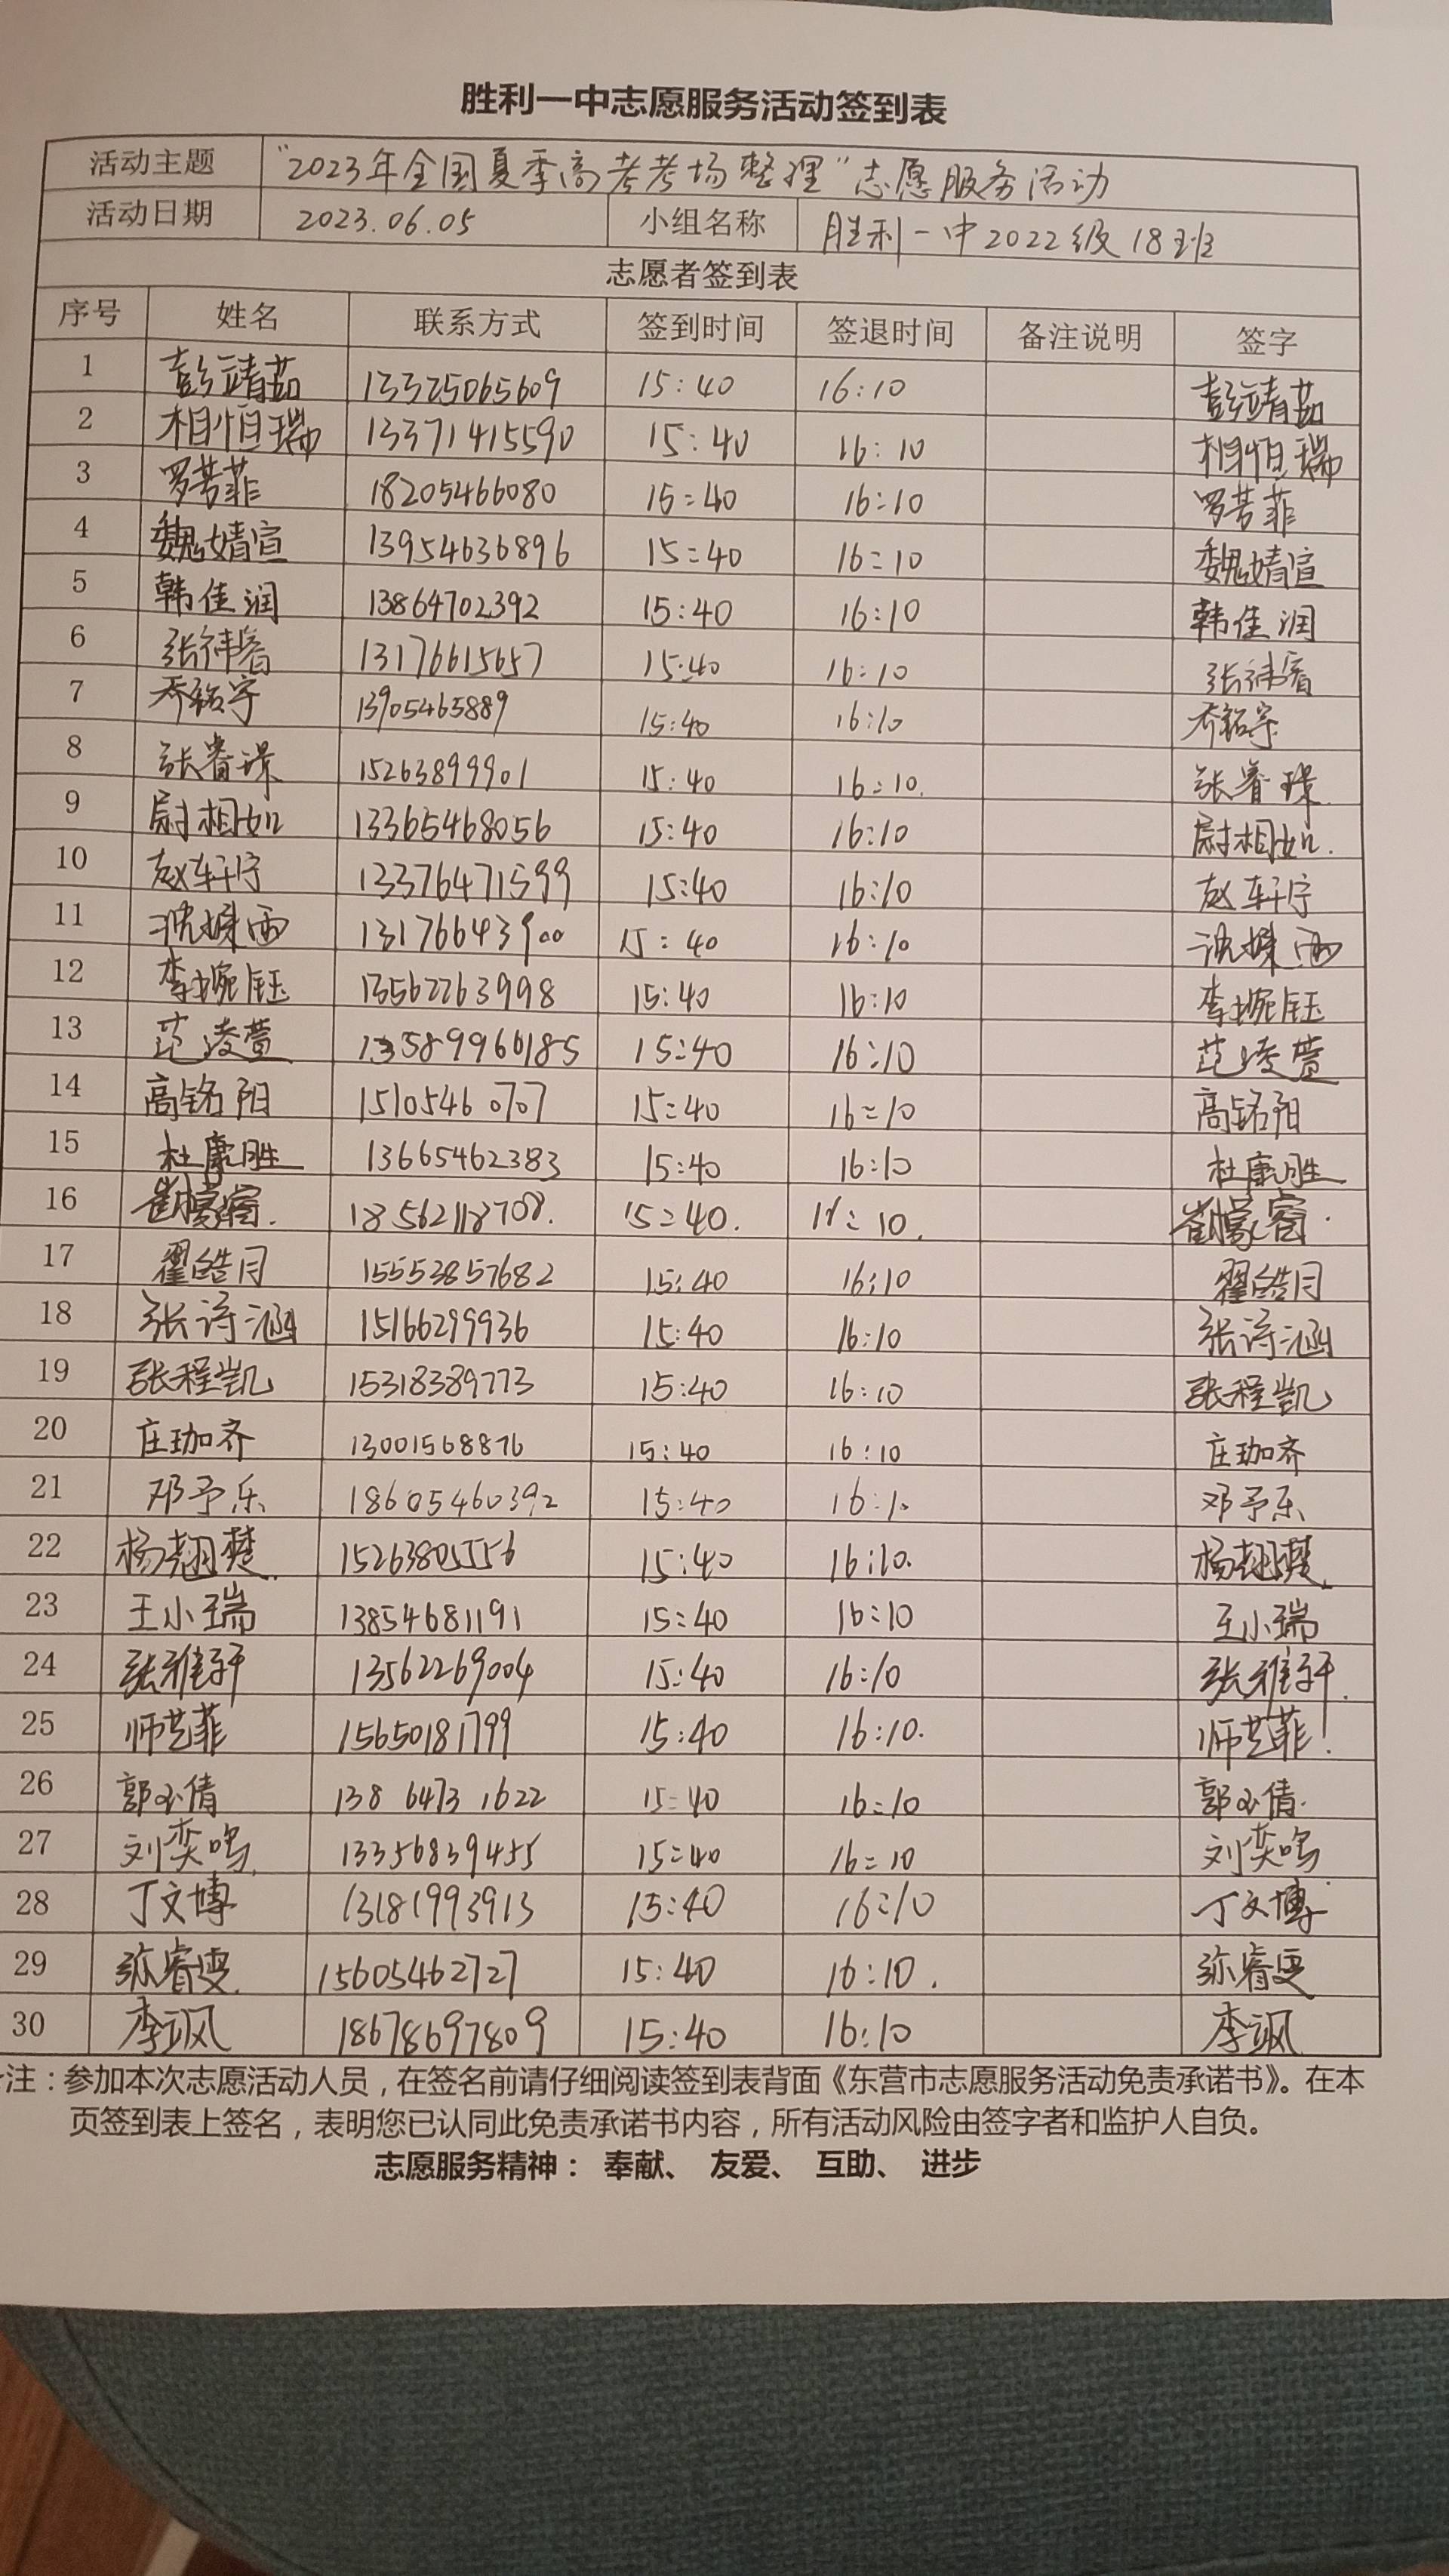 胜利一中志愿服务活动签到表
活动主题 “2023年全国夏季高考考场整理”志愿服务活动
活动日期 2023.06.05 小组名称 胜利一中2022级18班
志愿者签到表
序号 姓名 联系方式 签到时间 签退时间 备注说明 签字
1 彭靖茹 13325065609 15:40 16:10 彭靖茹
2 相恒瑞 13371415590 15:40 16:10 相恒瑞
3 罗芳菲 18205466080 15:40 16:10 罗芳菲
4 魏婧宣 13954636896 15:40 16:10 魏婧宣
5 韩佳润 13864702392 15:40 16:10 韩佳润
6 张祎睿 13176615657 15:40 16:10 张祎睿
7 乔铭宇 13905465889 15:40 16:10 乔铭宇
8 张睿璟 15263899901 15:40 16:10. 张睿璟
9 尉相如 13365468056 15:40 16:10 尉相如.
10 赵轩宇 13376471599 15:40 16:10 赵轩宇
11 沈姝雨 13176643900 15:40 16:10 沈姝雨
12 李婉钰 13562263998 15:40 16:10 李婉钰
13 范凌萱 13589966185 15:40 16:10 范凌萱
14 高铭阳 15105460707 15:40 16:10 高铭阳
15 杜康胜 13665462383 15:40 16:10 杜康胜
16 18562118708. 15:40. 16:10.
17 翟皓月 15553857682 15:40 16:10 翟皓月
18 张诗涵 15166299936 15:40 16:10 张诗涵
19 张程凯 15318389773 15:40 16:10 张程凯
20 庄珈齐 13001568876 15:40 16:10 庄珈齐
21 邓予乐 18605460392 15:40 16:10 邓予乐
22 杨翘楚 15263805556 15:40 16:10. 杨翘楚
23 王小瑞 13854681191 15:40 16:10 王小瑞
24 张雅轩 13562269004 15:40 16:10 张雅轩.
25 师艺菲 15650181799 15:40 16:10. 师艺菲!
26 138 6473 1622 15:40 16:10
27 刘奕鸣 13356839455 15:40 16:10 刘奕鸣
28 丁文博 13181993913 15:40 16:10 丁文博
29 弥睿雯 15605462727 15:40 16:10. 弥睿雯
30 李飒 18678697809 15:40 16:10 李飒
注：参加本次志愿活动人员，在签名前请仔细阅读签到表背面《东营市志愿服务活动免责承诺书》。在本
页签到表上签名，表明您已认同此免责承诺书内容，所有活动风险由签字者和监护人自负。
志愿服务精神： 奉献、 友爱、 互助、 进步